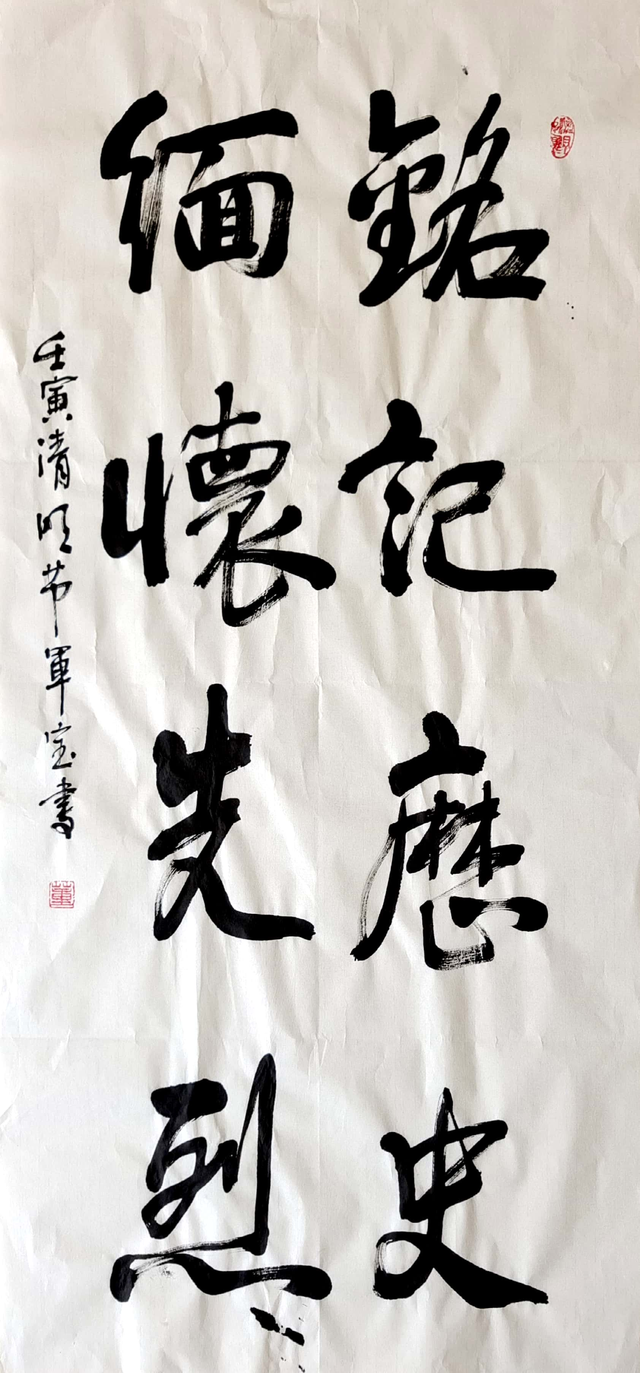 銘記歷史
緬懷先烈
壬寅清明节軍宝書